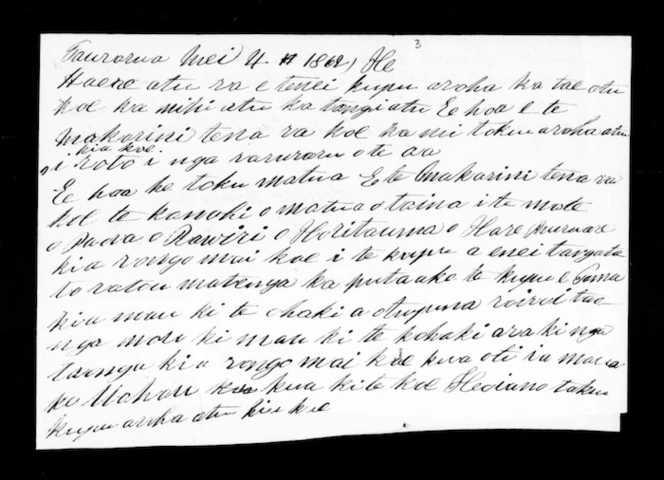 3
Taurarua Mei 4 1862, He
Haere atu ra e tenei kupu aroha ka tae atu
koe ka mihi atu ka tangi atu E hoa e te
Makarini tena ra koe ka nui toku aroha atu
kia koe
i roto i nga raruraru o te ao
E hoa ke toku matua E te Makarini tena ra
koe te kanohi o matua o taina i te mate
o Paora o Rawiri o Horitauma o Hare
kia rongo mai koe i te kupu a enei tangata
to ratou matenga ka puta ake te kupu e
kia mau ki te ohaki a o tupuna
nga mou ki mau ki te kohaki ara ki nga
taonga kia rongo mai koe kua oti ia
ko kua kite koe Heoiano taku
kupu aroha atu kia koe